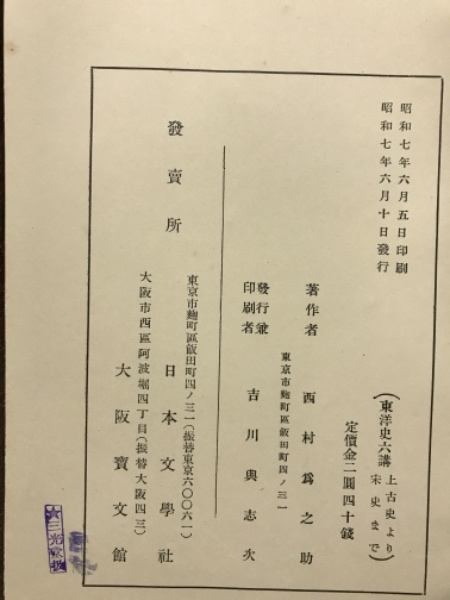 昭和七年六月五日印刷
昭和七年六月十日發行
(東洋史六講 上古史より宋史まで)
定價金二圓四十錢
著作者 西村爲之助
東京市麴町區飯田町四ノ三一
發行兼印刷者 吉川與志次
發賣所
東京市麴町區飯田町四ノ三一(振替東京六〇〇六一)
日本文學社
大阪市西區阿波堀四丁目(振替大阪四三)
大阪寶文館